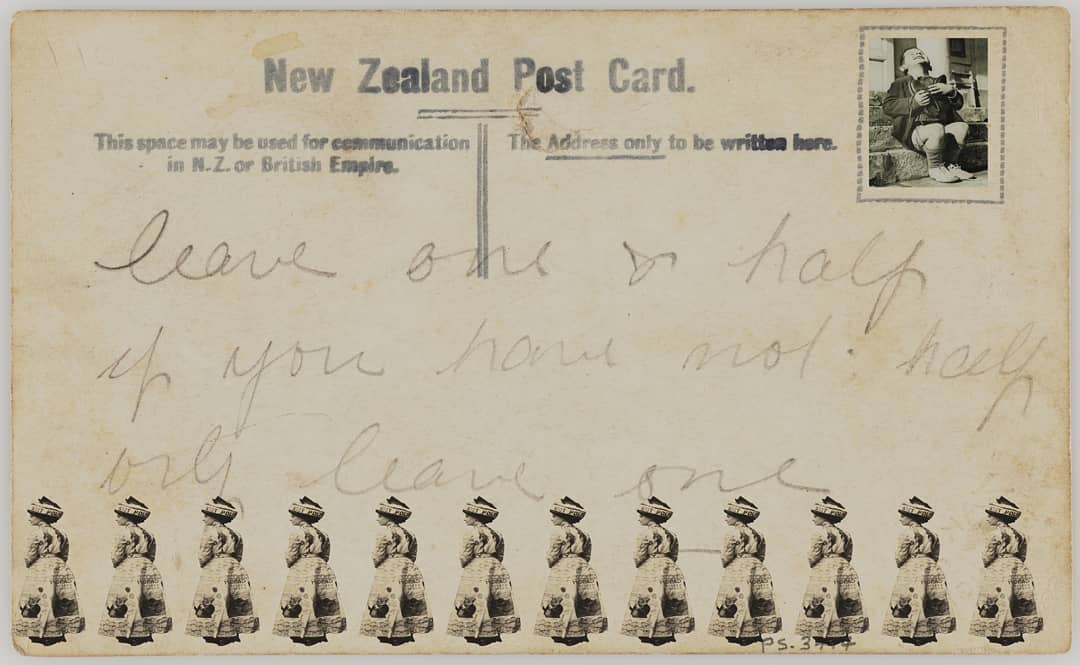 New Zealand Post Card.
This space may be used for communication
in N.Z. or British Empire.
The Address only to be written here.
leave one & half
if you have not half
only leave one